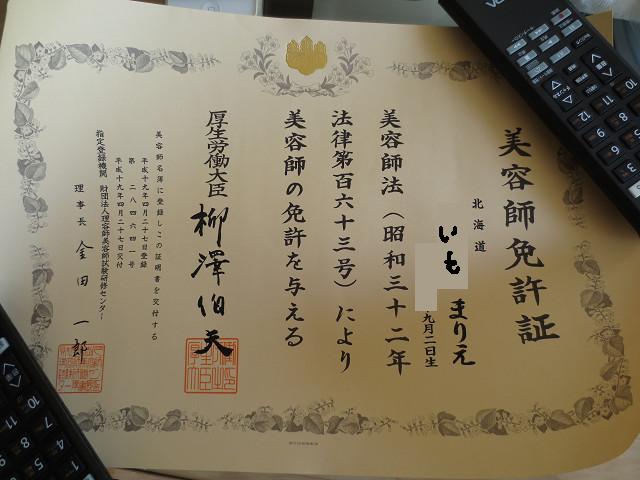 美容師免許証
北海道
いも まりえ
九月二日生
美容師法（昭和三十二年
法律第百六十三号）により
美容師の免許を与える
厚生労働大臣 柳澤伯夫
美容師名簿に登録しこの証明書を交付する
平成十九年四月二十七日登録
第二八四六四一号
平成十九年四月二十七日交付
指定登録機関 財団法人理容師美容師試験研修センター
理事長 金田一郎